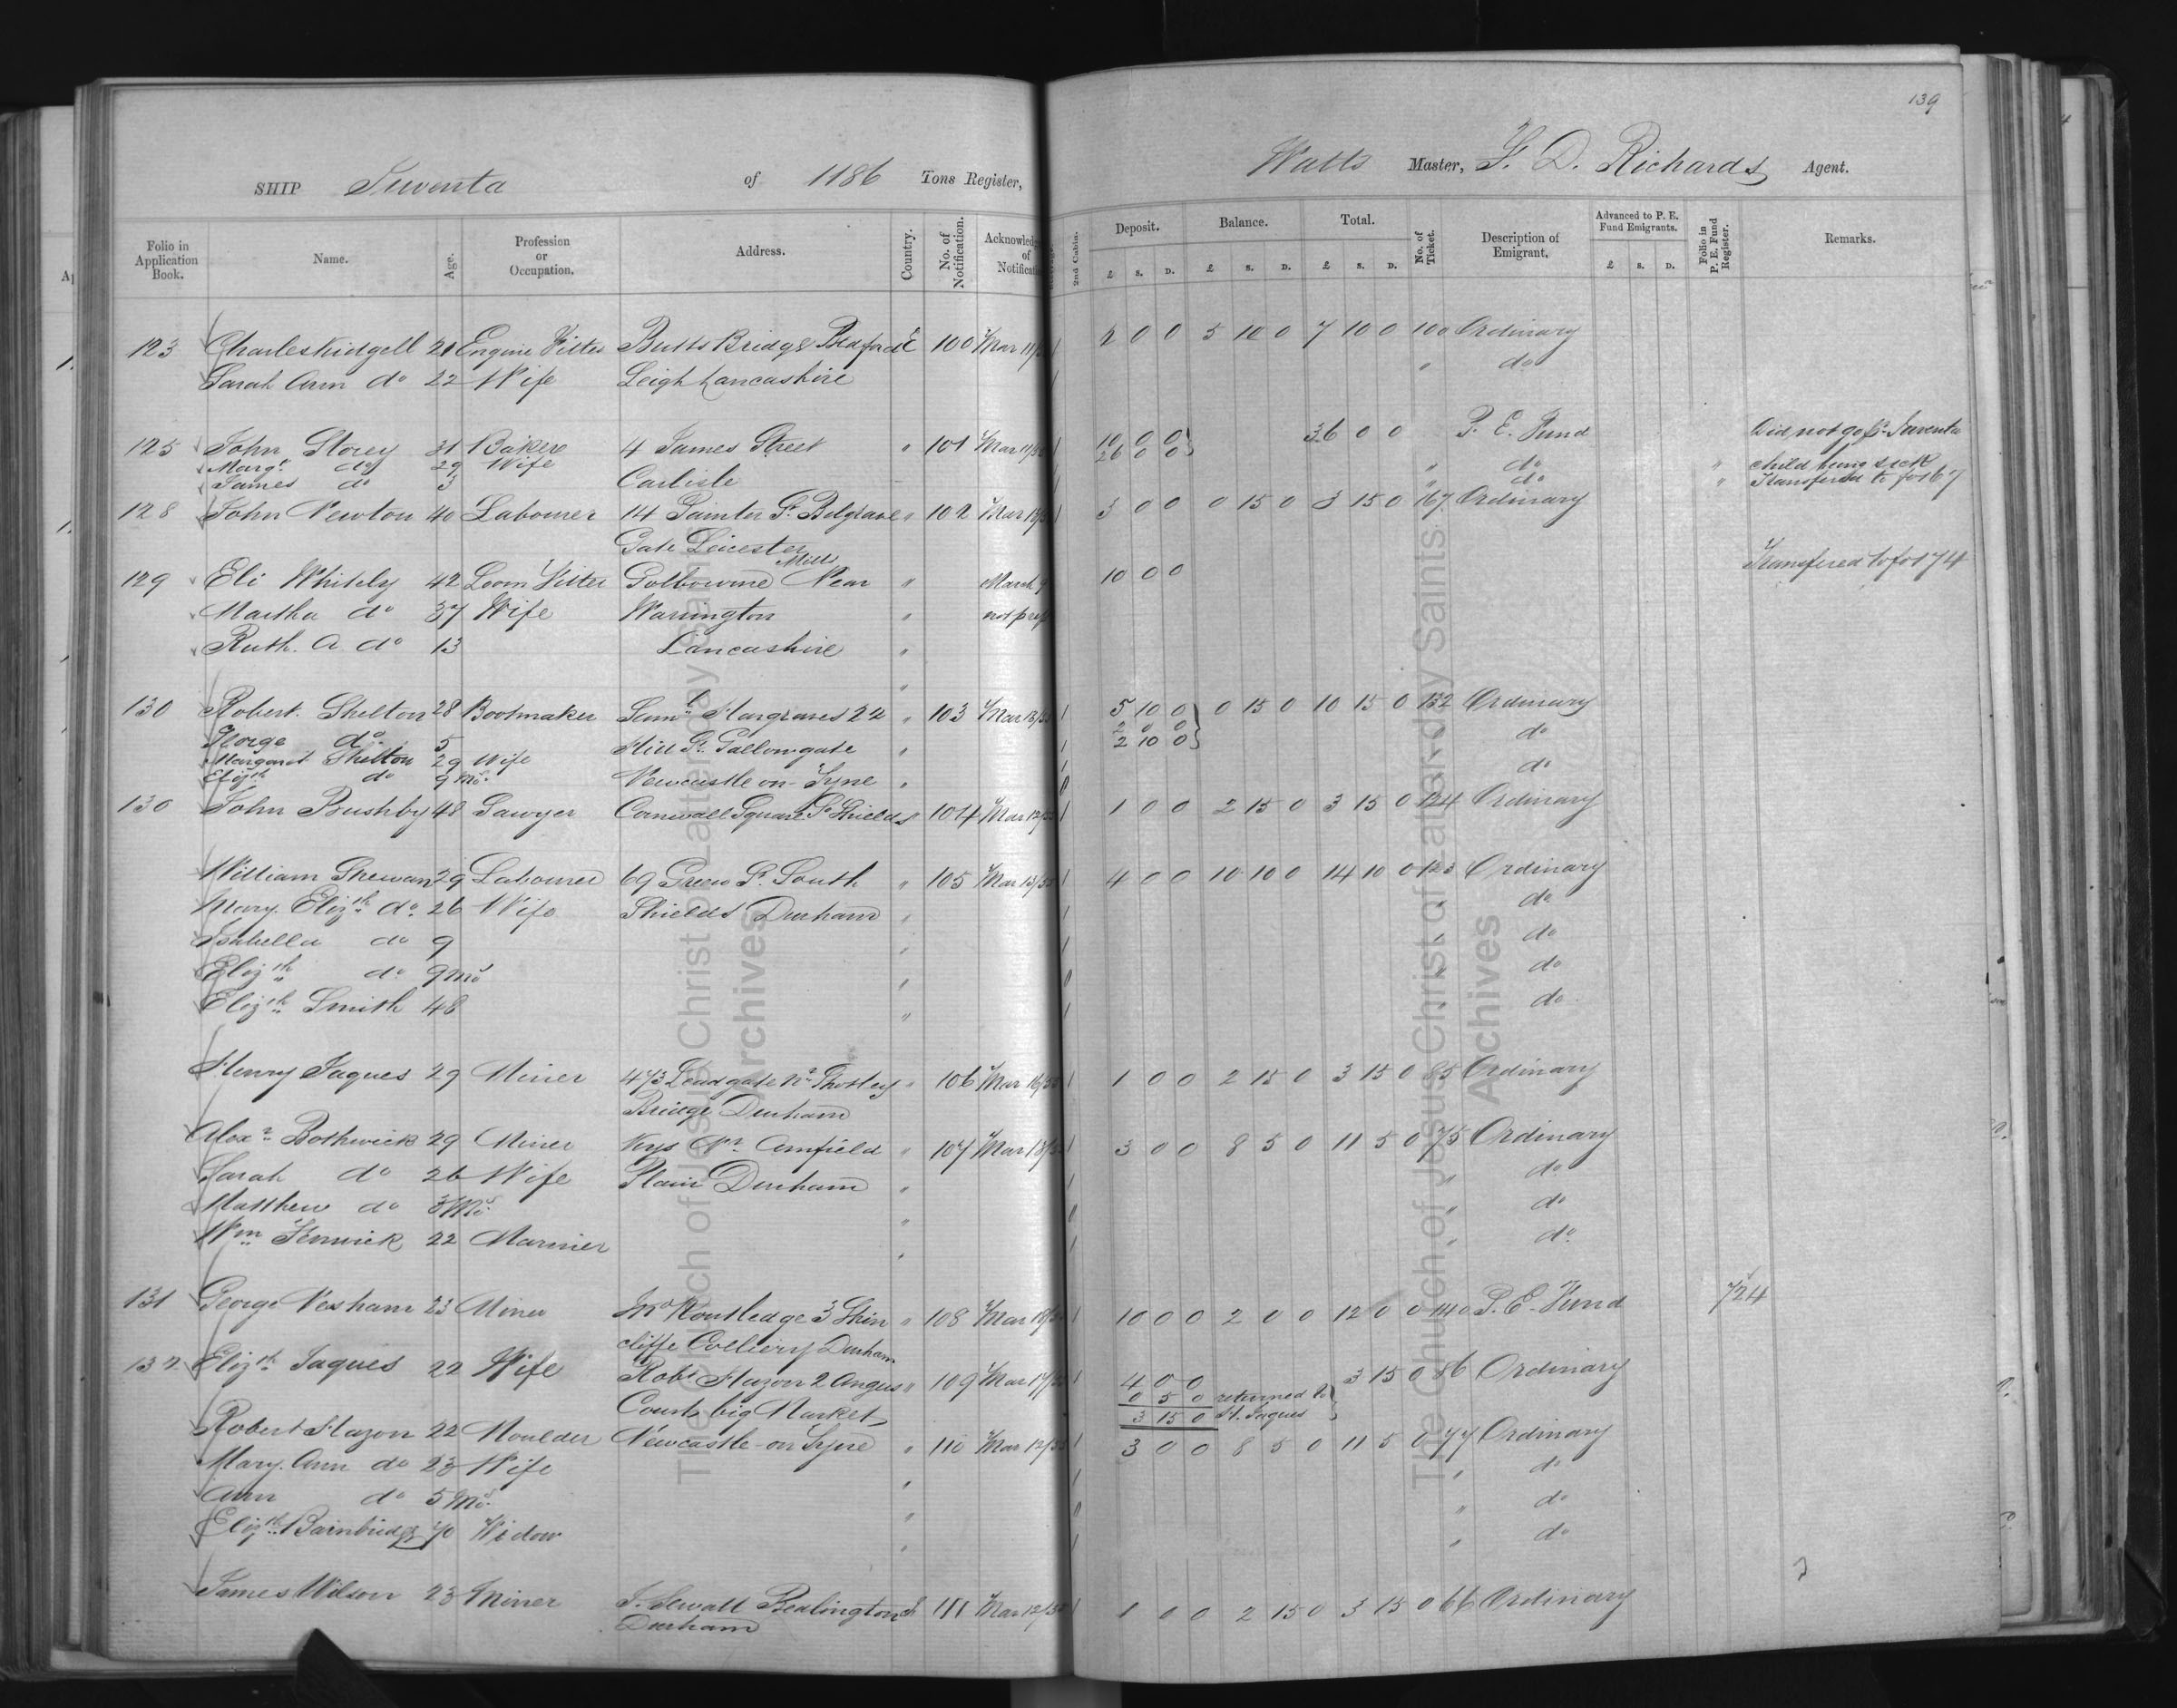 139
SHIP Juventa of 1186 Tons Register, Watts Master, F. D. Richards Agent.
Folio in Application Book. Name. Age. Profession or Occupation. Address. Country. No. of Notification. Acknowled of Notificati 2nd Cabin. Deposit. £ s. D. Balance. £ s. D. Total. £ s. D. No. of Ticket. Description of Emigrant. Advanced to P. E. Fund Emigrants. £ s. D. Folio in P. E. Fund Register. Remarks.
123 Charles Kidgell 21 Engine Fitter Butts Bridge Bedford E 100 Mar 11/ 1 2 0 0 5 10 0 7 10 0 100 Ordinary
Sarah Ann do 22 Wife Leigh Lancashire 1 " do
125 John Storey 31 Baker 4 James Street " 101 Mar 11/ 10 0 0 36 0 0 P. E. Fund Did not go pr Juventa
Margt do 29 Wife 26 0 0 " do " child being sick
James do 3 Carlisle " do " Transfered to fo 167
128 John Newton 40 Labourer 14 Painter St Belgrave " 102 Mar 13/ 3 0 0 0 15 0 3 15 0 167 Ordinary
Gate Leicester
Mills
129 Eli Whitely 42 Loom Fitter Golbourne Near " March 9 10 0 0 Transfered to fo 174
Martha do 37 Wife Warrington " not prep
Ruth. A do 13 Lancashire "
"
130 Robert Shelton 28 Bootmaker Saml Hargraves 22 " 103 Mar 13/55 1 5 10 0 0 15 0 10 15 0 132 Ordinary
2 0 0
George do 5 Hill St Gallowgate " 1 2 10 0 do
Margaret Shelton 29 Wife 1 do
Elizth do 9 mo. Newcastle on Tyne " 0
130 John Bushby 48 Sawyer Cornwall Square So Shields " 104 Mar 12/55 1 1 0 0 2 15 0 3 15 0 124 Ordinary
William Shewan 29 Labourer 69 Green St South " 105 Mar 13/55 1 4 0 0 10 10 0 14 10 0 123 Ordinary
Mary Elizth do 26 Wife Shields Durham " 1 " do
Isabella do 9 " 1 " do
Elizth do 9 mo " 0 " do
Elizth Smith 48 " 1 " do
Henry Jaques 29 Miner 473 Leadgate Nr Shotley " 106 Mar 16/55 1 1 0 0 2 15 0 3 15 0 85 Ordinary
Bridge Durham
Alexr Bothwick 29 Miner Kys Nr Anfield " 107 Mar 13/55 1 3 0 0 8 5 0 11 5 0 75 Ordinary
Sarah do 26 Wife Plain Durham " 1 " do
Matthew do 3 Mo. " 0 " do
Wm Fenwick 22 Mariner " 1 " do
131 George Nesham 23 Miner Jno Routledge 3 Shin " 108 Mar 18/ 1 10 0 0 2 0 0 12 0 0 140 P. E. Fund 724
cliffe Colliery Durham
132 Elizth Jaques 22 Wife Robt Hazon 2 Angus " 109 Mar 17/55 1 4 0 0 3 15 0 86 Ordinary
0 5 0 returned to
Court, big Market, 3 15 0 H. Jaques
Robert Hazon 22 Moulder Newcastle-on Tyne " 110 Mar 12/55 1 3 0 0 8 5 0 11 5 0 77 Ordinary
Mary Ann do 23 Wife " 1 " do
Ann do 5 Mo. " 0 " do
Elizth Bainbridge 70 Widow " 1 " do
James Wilson 23 Miner J. Sewall Bedlington 111 Mar 12/55 1 1 0 0 2 15 0 3 15 0 66 Ordinary
Durham
The Church of Jesus Christ of Latter-day Saints
Archives
The Church of Jesus Christ of Latter-day Saints
Archives